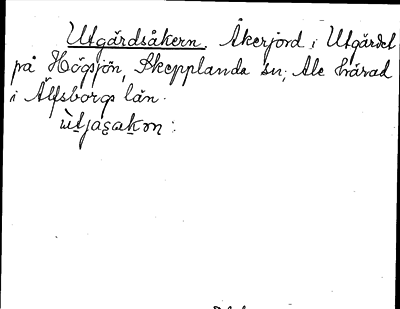 Utgårdsåkern. Åkerjord i Utgärdet
på Högsjön, Skepplanda sn; Ale härad
i Älfsborgs län.